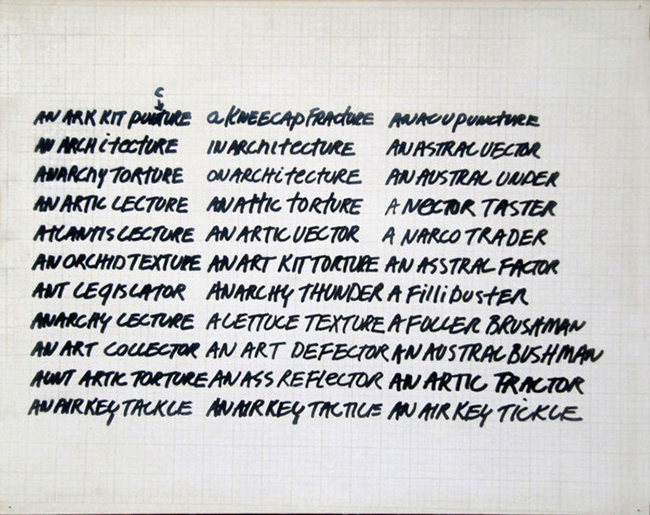 C
AN ARK KIT PUNTURE a KNEECAP FRACTURE AN ACUPUNCTURE
AN ARCHITECTURE IN ARCHITECTURE AN ASTRAL VECTOR
ANARCHY TORTURE ON ARCHITECTURE AN AUSTRAL UNDER
AN ARTIC LECTURE AN ATTIC TORTURE A NECTOR TASTER
ATLANTIS LECTURE AN ARTIC VECTOR A NARCO TRADER
AN ORCHID TEXTURE AN ART KIT TORTURE AN ASSTRAL FACTOR
ANT LEGISLATOR ANARCHY THUNDER A FILLIBUSTER
ANARCHY LECTURE A LETTUCE TEXTURE A FULLER BRUSHMAN
AN ART COLLECTOR AN ART DEFECTOR AN AUSTRAL BUSHMAN
AUNT ARTIC TORTURE AN ASS REFLECTOR AN ARTIC TRACTOR
AN AIR KEY TACKLE AN AIR KEY TACTILE AN AIR KEY TICKLE